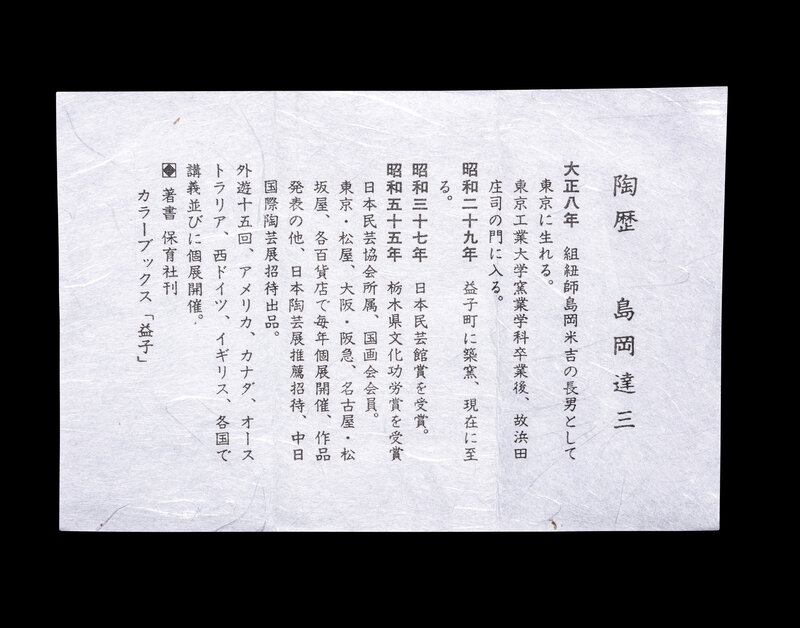 陶歴　島岡達三
大正八年　組紐師島岡米吉の長男として
東京に生れる。
東京工業大学窯業学科卒業後、故浜田
庄司の門に入る。
昭和二十九年　益子町に築窯、現在に至
る。
昭和三十七年　日本民芸館賞を受賞。
昭和五十五年　栃木県文化功労賞を受賞
日本民芸協会所属、国画会会員。
東京・松屋、大阪・阪急、名古屋・松
坂屋、各百貨店で毎年個展開催、作品
発表の他、日本陶芸展推薦招待、中日
国際陶芸展招待出品。
外遊十五回、アメリカ、カナダ、オース
トラリア、西ドイツ、イギリス、各国で
講義並びに個展開催。
◈ 著書 保育社刊
カラーブックス「益子」